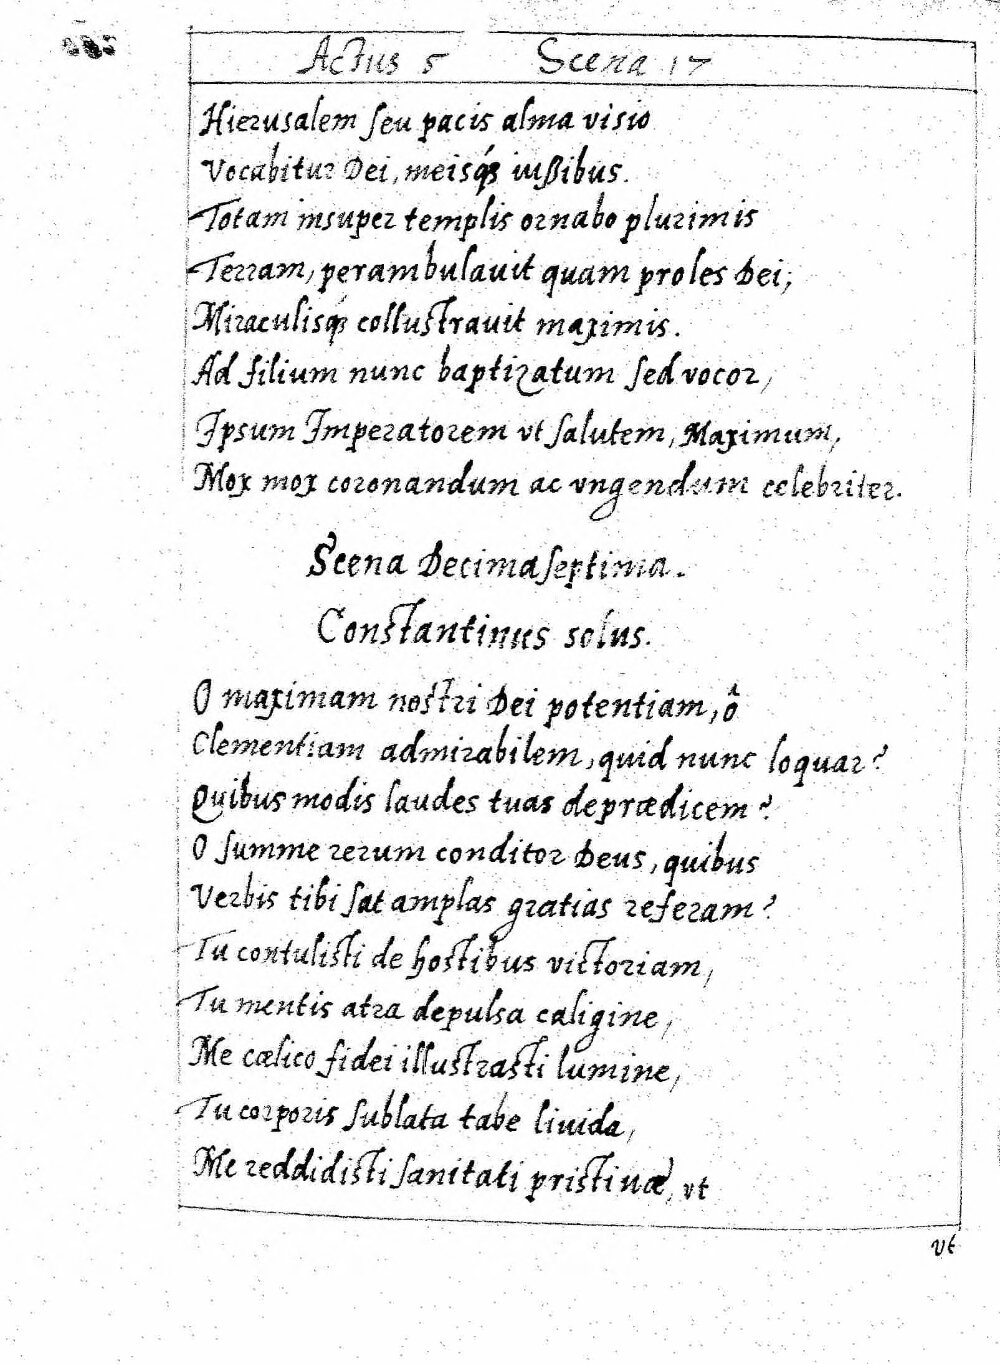 Actus 5 Scena 17
Hierusalem seu pacis alma visio
Vocabitur Dei, meisq́ꝫ iußibus.
Totam insuper templis ornabo plurimis
Terram, perambulauit quam proles Dei;
Miraculisq́ꝫ collustrauit maximis.
Ad filium nunc baptizatum sed vocor,
Ipsum Imperatorem vt salutem, Maximum,
Mox mox coronandum ac vngendum celebriter.
Scena Decimaseptima.
Constantinus solus.
O maximam nostri Dei potentiam, ô
Clementiam admirabilem, quid nunc loquar?
Quibus modis laudes tuas deprædicem?
O summe rerum conditor Deus, quibus
Verbis tibi sat amplas gratias referam?
Tu contulisti de hostibus victoriam,
Tu mentis atra depulsa caligine,
Me cælico fidei illustrasti lumine,
Tu corporis sublata tabe liuida,
Me reddidisti sanitati pristinæ, vt
vt